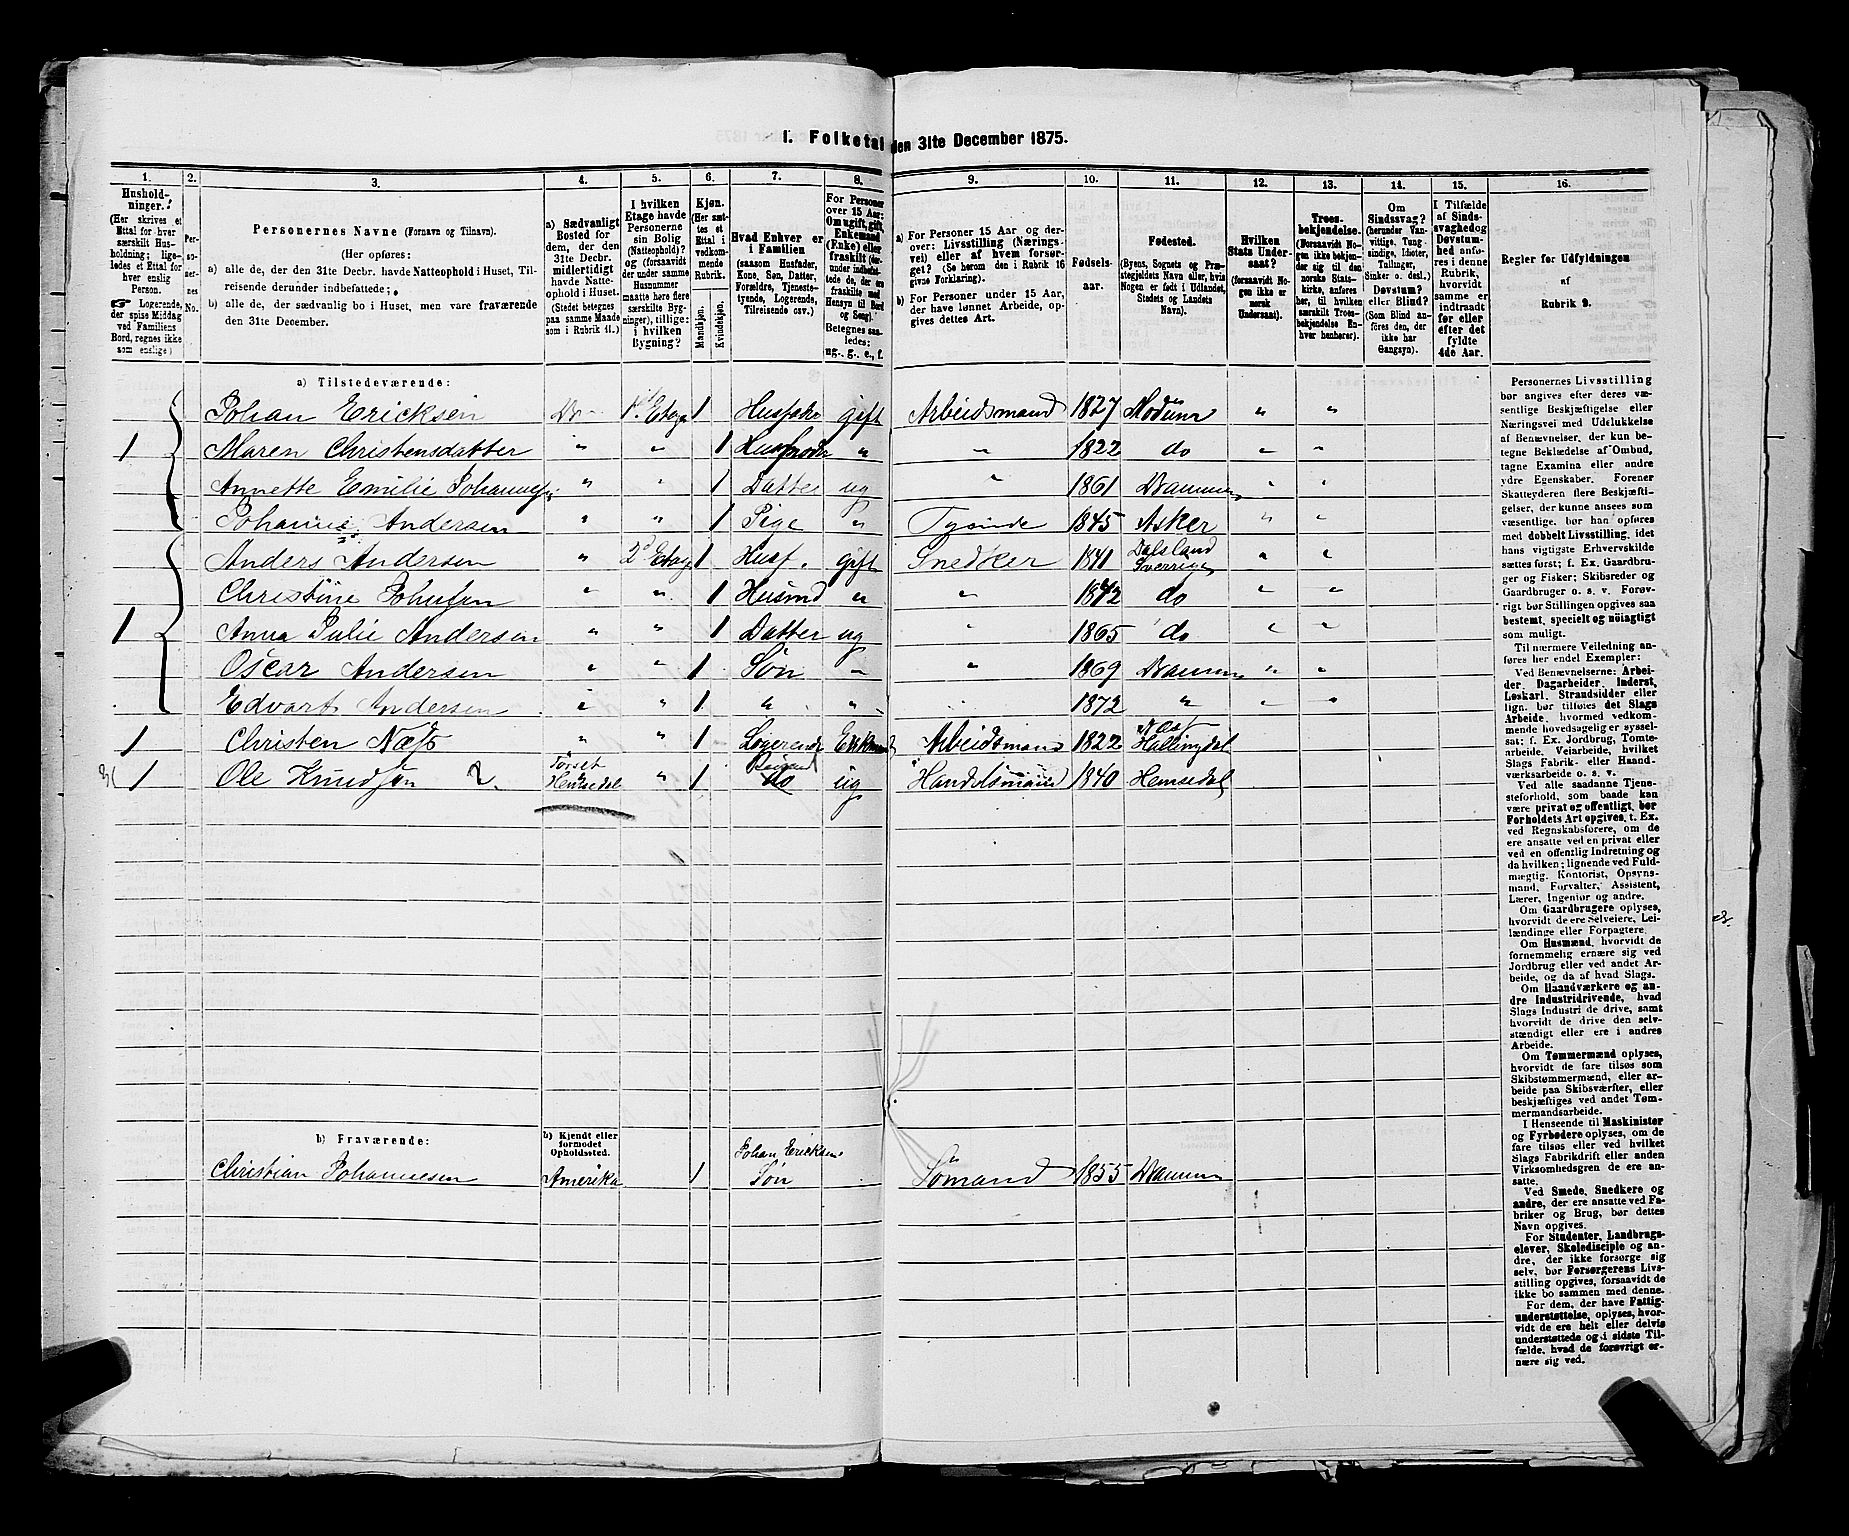 I. Folketal den 31te December 1875.
1. 2. 3. 4. 5. 6. 7. 8. 9. 10. 11. 12. 13. 14. 15. 16.
Husholdninger. (Her skrives et Ettal for hver særskilt Husholdning; ligeledes et Ettal for hver enslig Person. Logerende, der spise Middag ved Familiens Bord, regnes ikke som enslige)
Personernes No.
Personernes Navne (Fornavn og Tilnavn).
(Her opføres:
a) alle de, der den 31te Decbr. havde Natteophold i Huset, Tilreisende derunder indbefattede;
b) alle de, der sædvanlig bo i Huset, men vare fraværende den 31te December.
a) Sædvanligt Bosted for dem, der den 31te Decbr. midlertidigt havde Natteophold i Huset. (Stedet betegnes paa samme Maade som i Rubrik 11.)
I hvilken Etage havde Personerne sin Bolig (Natteophold)? (forsaavidt der under samme Husnummer maatte høre flere særskilte Bygninger), tillige: i hvilken Bygning?
Kjøn. (Her sættes et Ettal i vedkommende Rubrik. Mandkjøn. Kvindekjøn.
Hvad Enhver er i Familien (saasom Husfader, Kone, Søn, Datter, Forældre, Tjenestetyende, Logerende, Tilreisende osv.)
For Personer over 15 Aar: Om ugift, gift, Enkemand (Enke) eller fraskilt
Betegnes saaledes: ug., g., e., f.
a) For Personer 15 Aar og derover: Livsstilling (Næringsvei) eller af hvem forsørget? (Se herom den i Rubrik 16 givne Forklaring).
b) For Personer under 15 Aar, der have lønnet Arbeide, opgives dettes Art.
Fødselsaar.
Fødested. (Byens, Sognets og Præstegjeldets Navn eller, hvis Nogen er født i Udlandet, Stedets og Landets Navn).
Hvilken Stats Undersaat? (forsaavidt Nogen ikke er norsk Undersaat).
Troesbekjendelse. (Forsaavidt Nogen ikke bekjender sig til den norske Statskirke, anføres her, til hvilken særskilt Troesbekjendelse Enhver henhører).
Om Sindssvag? (herunder Vanvittige, Tungsindige, Idioter, Tullinger, Sinker o. desl.) Døvstum? eller Blind? (Som Blind anføres den, der ikke har Gangsyn).
I Tilfælde af Sindssvaghed og Døvstumhed anføres i denne Rubrik, hvorvidt samme er indtraadt før eller efter det fyldte 4de Aar.
Regler for Udfyldningen af Rubrik 9.
a) Tilstedeværende:
Johan Ericksen Do 1st Etage 1 Husfader gift Arbeidsmand 1827 Modum " "
1 Maren Christensdatter " " 1 Husmoder " " 1822 do " "
Annette Emilie " " 1 Datter ug " 1861 Drammen " "
Johanne Andersen " " 1 Pige " Tyende 1845 Asker " "
Anders Andersen " 2d Etage 1 Husf. gift Snedker 1841 Dalsland Sverrige " "
Christine " " 1 " " 1842 do " "
1 Anna Julie Andersen " " 1 Datter ug " 1865 do " "
Oscar Andersen " " 1 Søn " " 1869 Drammen " "
Edvart Andersen " " 1 " " 1872 " " "
1 Christen Næss " " 1 Logerende Enkemand Arbeidsmand 1822 Hallingdal
1 Ole Knudsen 2. Hemsedal " 1 do ug Handelsmand 1840 Hemsedal
b) Fraværende:
b) Kjendt eller formodet Opholdssted.
Christian Johannesen Amerika 1 Johan Ericksens Søn Sømand 1855 Drammen
Personernes Livsstilling
bør angives efter deres væ-
sentlige Beskjæftigelse eller
Næringsvei med Udelukkelse
af Benævnelser, der kun be-
tegne Beklædelse af Ombud,
tagne Examina eller andre
ydre Egenskaber. Forener
Skatteyderen flere Beskjæfti-
gelser, der kunne ansees som
væsentlige, bør han opføres
med dobbelt Livsstilling, idet
hans vigtigste Erhvervskilde
sættes først; f. Ex. Gaardbru-
ger og Fisker; Skibsreder og
Gaardbruger o. s. v. Forøv-
rigt bør Stillingen opgives saa
bestemt, specielt og nøiagtigt
som muligt.
Til nærmere Veiledning an-
føres her endel Exempler:
Ved Benævnelserne: Arbei-
der, Dagarbeider, Inderst,
Løskarl, Strandsidder eller
lign. bør tilføies det Slags
Arbeide, hvormed vedkom-
mende hovedsagelig er syssel-
sat; f. Ex. Jordbrug, Tomte-
arbeide, Veiarbeide, hvilket
Slags Fabrik- eller Haand-
værksarbeide o. s. v.
Ved alle saadanne Tjene-
steforhold, som baade kan
være privat og offentligt, bør
Forholdets Art opgives, t. Ex.
ved Regnskabsførere, om de
ere ansatte ved en privat eller
ved en offentlig Indretning og
da hvilken; lignende ved Fuld-
mægtig, Kontorist, Opsyns-
mand, Forvalter, Assistent,
Lærer, Ingeniør og andre.
Om Gaardbrugere oplyses,
hvorvidt de ere Selveiere, Lei-
lændinge eller Forpagtere.
Om Husmænd, hvorvidt de
fornemmelig ernære sig ved
Jordbrug eller ved andet Ar-
beide, og da af hvad Slags.
Om Haandværkere og an-
dre Industridrivende, hvad
Slags Industri de drive, samt
hvorvidt de drive den selv-
stændigt eller ere i andres
Arbeide.
Om Tømmermænd oplyses,
hvorvidt de fare tilsøs som
Skibstømmermænd, eller ar-
beide paa Skibsværfter, eller
beskjæftiges ved andet Tøm-
mermandsarbeide.
I Henseende til Maskinister
og Fyrbødere oplyses, om de
fare tilsøs eller ved hvilket
Slags Fabrikdrift eller anden
Virksomhedsgren de ere an-
satte.
Ved Smede, Snedkere og
andre, der ere ansatte ved Fa-
briker og Brug, bør dettes
Navn opgives.
For Studenter, Landbrugs-
elever, Skoledisciple og an-
dre, der ikke forsørge sig
selv, bør Forsørgerens Livs-
stilling opgives, forsaavidt de
ikke bo sammen med denne.
For dem, der have Fattig-
understøttelse, oplyses, hvor-
vidt de ere helt eller delvis
understøttede og i sidste Til-
fælde, hvad de forøvrigt er-
nære sig ved.